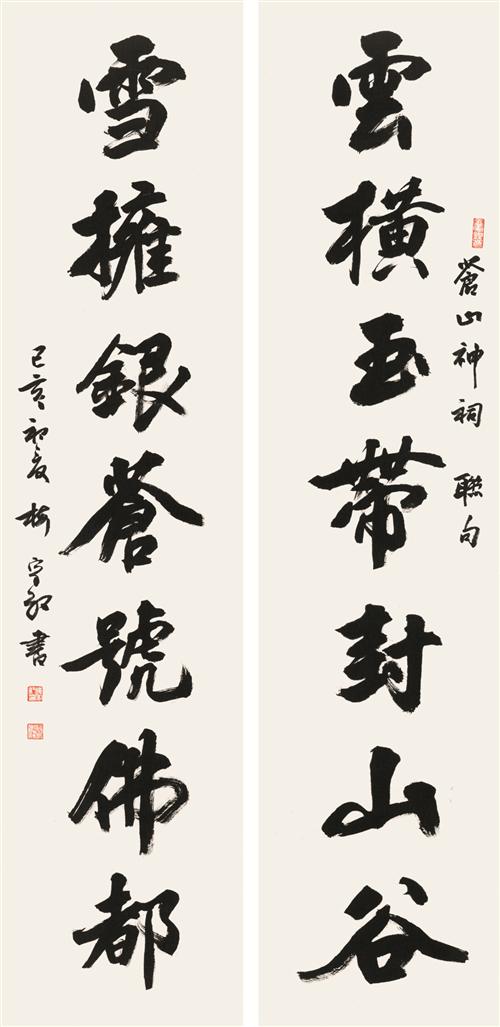 雲橫玉帶封山谷
蒼山神祠 聯句
雪擁銀蒼號佛都
己亥初夏 梅 書